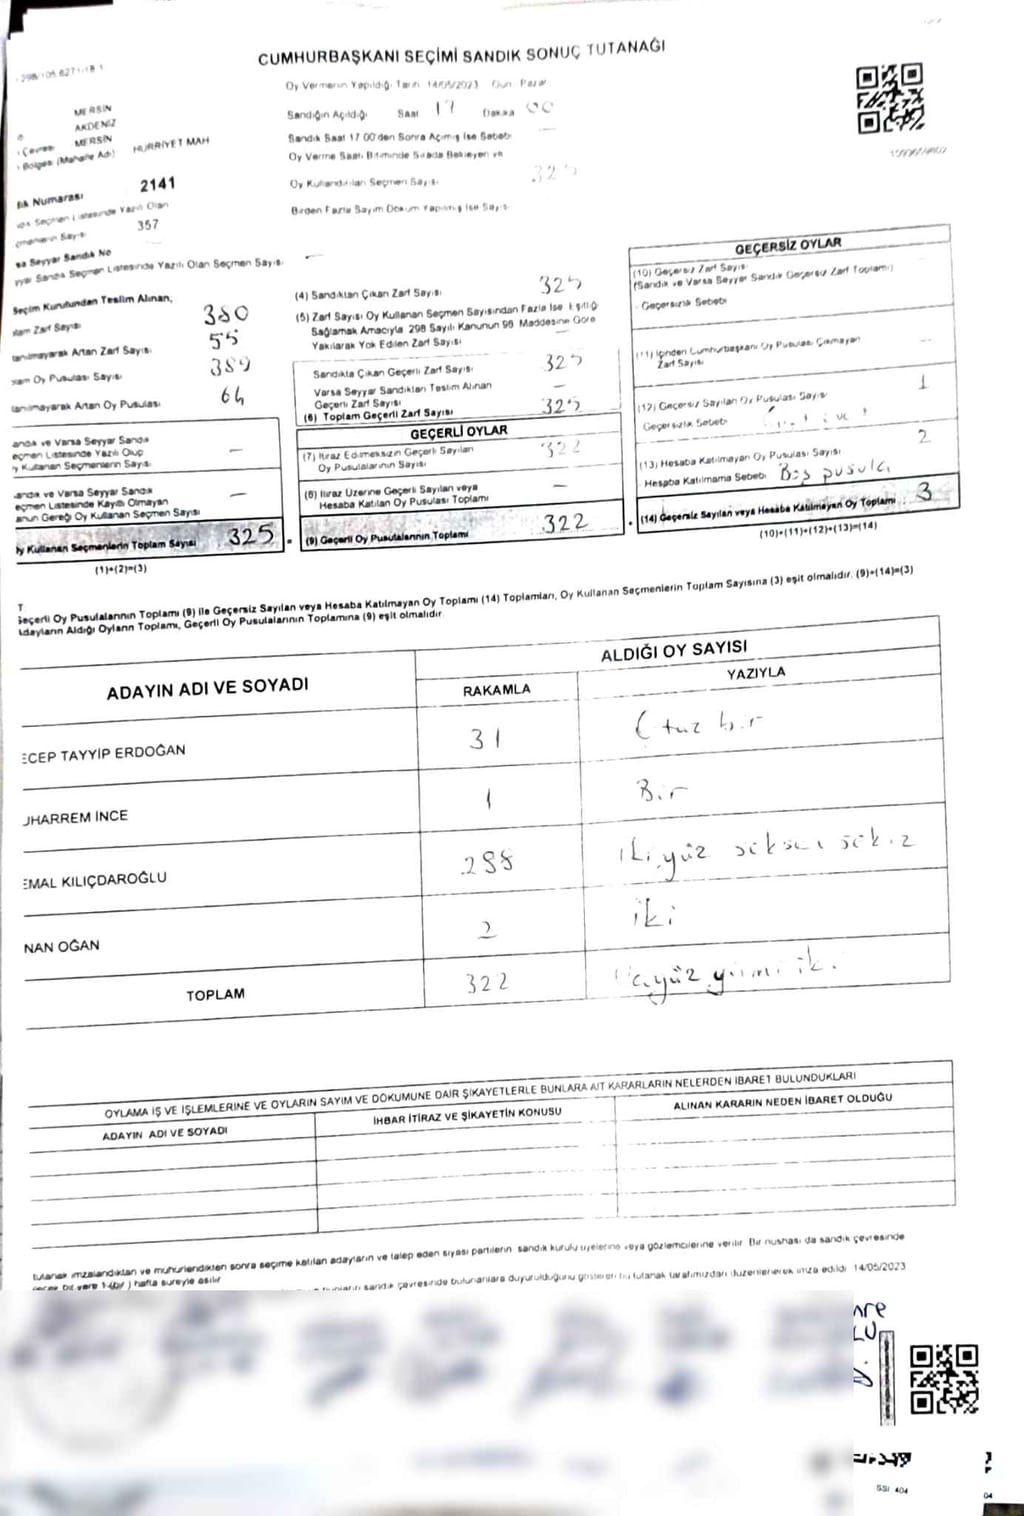 CUMHURBAŞKANI SEÇİMİ SANDIK SONUÇ TUTANAĞI
Oy Vermenin Yapıldığı Tarih 14/05/2023 Gün Pazar
Sandığın Açıldığı Saat 17 Dakika 00
Sandık Saat 17 00'den Sonra Açılmış İse Sebebi
Oy Verme Saati Bitiminde Sırada Bekleyen ve
Oy Kullandırılan Seçmen Sayısı 325
Birden Fazla Sayım Döküm Yapılmış İse Sayısı
MERSİN
AKDENİZ
Çevresi MERSİN
Bölgesi (Mahalle Adı) HÜRRİYET MAH
Numarası 2141
Seçmen Listesinde Yazılı Olan
Sayısı 357
sa Seyyar Sandık No
yyar Sandık Seçmen Listesinde Yazılı Olan Seçmen Sayısı
Seçim Kurulundan Teslim Alınan,
Zarf Sayısı 380
Artan Zarf Sayısı 55
Oy Pusulası Sayısı 389
Artan Oy Pusulası 64
ve Varsa Seyyar Sandık
Seçmen Listesinde Yazılı Olup
Oy Kullanan Seçmenlerin Sayısı –
ve Varsa Seyyar Sandık
Seçmen Listesinde Kayıtlı Olmayan
Kanun Gereği Oy Kullanan Seçmen Sayısı –
Oy Kullanan Seçmenlerin Toplam Sayısı 325
(1)+(2)=(3)
(4) Sandıktan Çıkan Zarf Sayısı 325
(5) Zarf Sayısı Oy Kullanan Seçmen Sayısından Fazla İse Eşitliği
Sağlamak Amacıyla 298 Sayılı Kanunun 98 Maddesine Göre
Yakılarak Yok Edilen Zarf Sayısı –
Sandıkta Çıkan Geçerli Zarf Sayısı 325
Varsa Seyyar Sandıkları Teslim Alınan
Geçerli Zarf Sayısı –
(6) Toplam Geçerli Zarf Sayısı 325
GEÇERLİ OYLAR
(7) İtiraz Edilmeksizin Geçerli Sayılan
Oy Pusulalarının Sayısı 322
(8) İtiraz Üzerine Geçerli Sayılan veya
Hesaba Katılan Oy Pusulası Toplamı –
(9) Geçerli Oy Pusulalarının Toplamı 322
GEÇERSİZ OYLAR
(10) Geçersiz Zarf Sayısı
(Sandık ve Varsa Seyyar Sandık Geçersiz Zarf Toplamı)
Geçersizlik Sebebi
(11) İçinden Cumhurbaşkanı Oy Pusulası Çıkmayan
Zarf Sayısı
(12) Geçersiz Sayılan Oy Pusulası Sayısı 1
Geçersizlik Sebebi
(13) Hesaba Katılmayan Oy Pusulası Sayısı 2
Hesaba Katılmama Sebebi Boş pusula
(14) Geçersiz Sayılan veya Hesaba Katılmayan Oy Toplamı 3
(10)+(11)+(12)+(13)=(14)
Geçerli Oy Pusulalarının Toplamı (9) ile Geçersiz Sayılan veya Hesaba Katılmayan Oy Toplamı (14) Toplamları, Oy Kullanan Seçmenlerin Toplam Sayısına (3) eşit olmalıdır. (9)+(14)=(3)
Adayların Aldığı Oyların Toplamı, Geçerli Oy Pusulalarının Toplamına (9) eşit olmalıdır.
ADAYIN ADI VE SOYADI ALDIĞI OY SAYISI
RAKAMLA YAZIYLA
ECEP TAYYİP ERDOĞAN 31 Otuz bir
UHARREM İNCE 1 Bir
EMAL KILIÇDAROĞLU 288 iki yüz seksen sekiz
NAN OĞAN 2 iki
TOPLAM 322 Üçyüz yirmi iki
OYLAMA İŞ VE İŞLEMLERİNE VE OYLARIN SAYIM VE DÖKÜMÜNE DAİR ŞİKAYETLERLE BUNLARA AİT KARARLARIN NELERDEN İBARET BULUNDUKLARI
ADAYIN ADI VE SOYADI İHBAR İTİRAZ VE ŞİKAYETİN KONUSU ALINAN KARARIN NEDEN İBARET OLDUĞU
tutanak imzalandıktan ve mühürlendikten sonra seçime katılan adayların ve talep eden siyasi partilerin sandık kurulu üyelerine veya gözlemcilerine verilir. Bir nüshası da sandık çevresinde
hafta süreyle asılır
sandık çevresinde bulunanlara duyurulduğunu gösteren bu tutanak tarafımızdan düzenlenerek imza edildi 14/05/2023
SSI 404